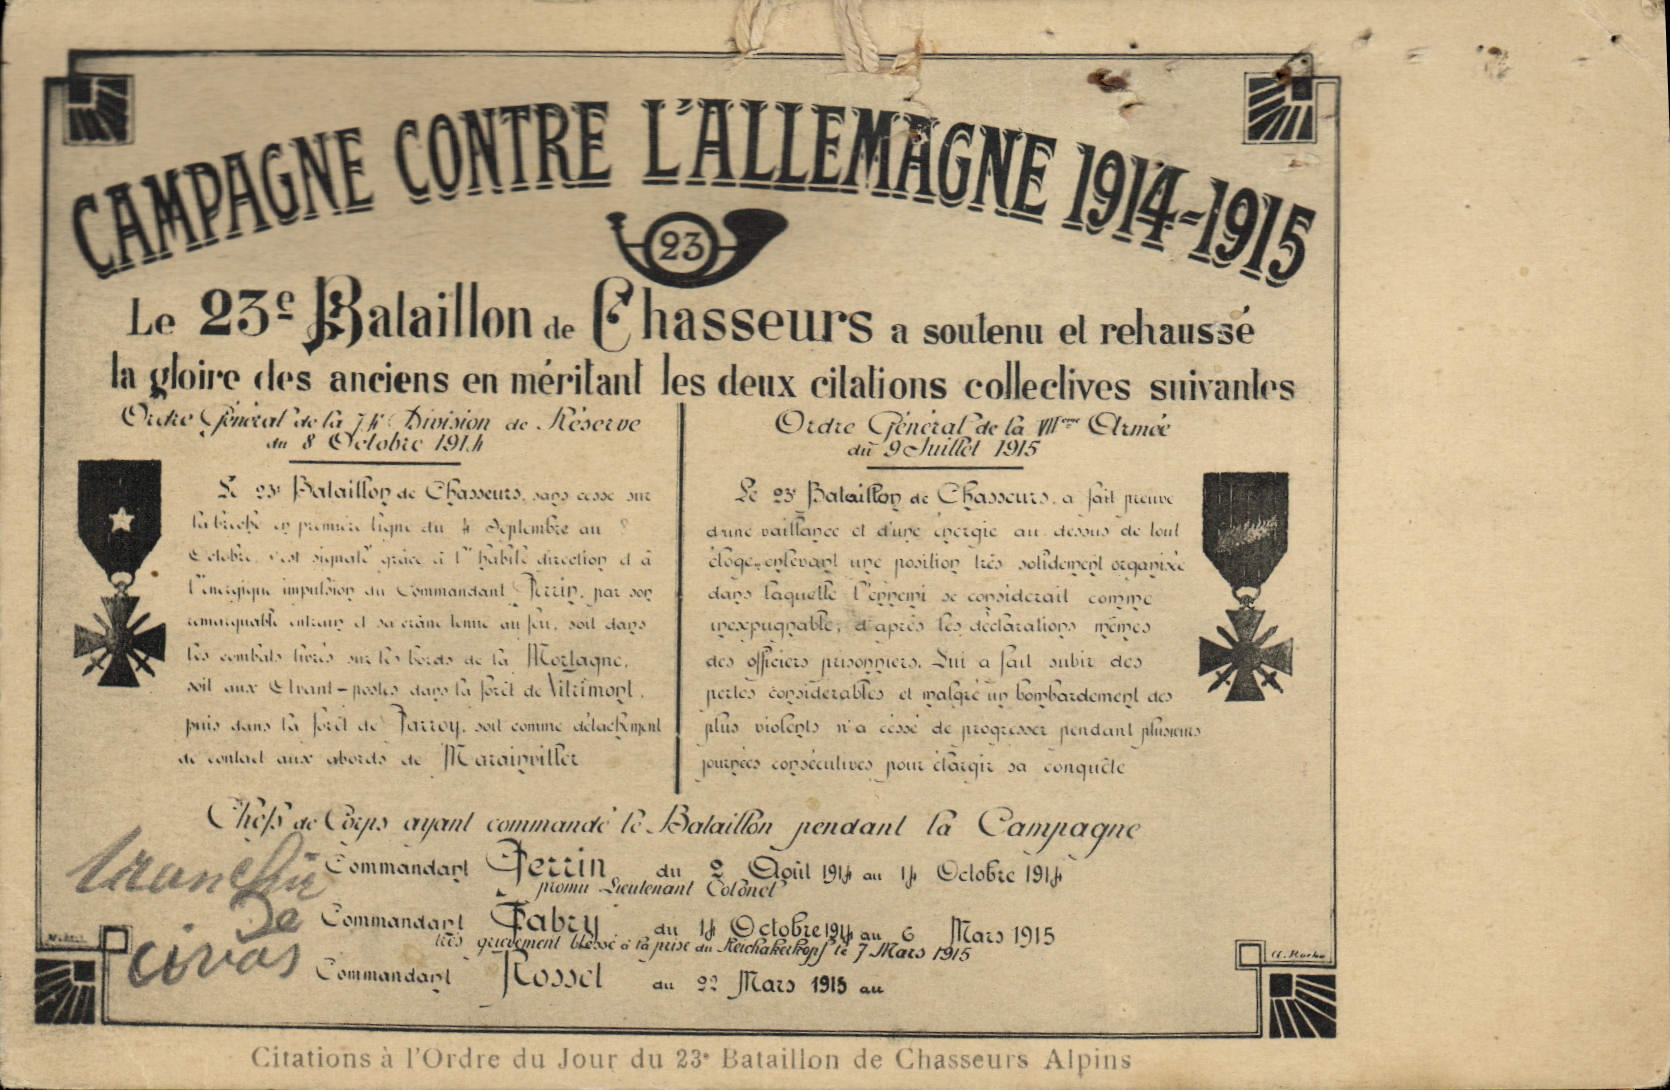 CAMPAGNE CONTRE L'ALLEMAGNE 1914-1915
23
Le 23e Bataillon de Chasseurs a soutenu et rehaussé
la gloire des anciens en méritant les deux citations collectives suivantes
Ordre Général de la 74e Division de Réserve
du 8 Octobre 1914
Le 23e Bataillon de Chasseurs, sans cesse sur
la brèche en première ligne du 4 Septembre au 8
Octobre, s'est signalé grâce à l' habile direction et à
l'énergique impulsion du Commandant Ferrin, par son
remarquable entrain et sa crâne tenue au feu, soit dans
les combats livrés sur les bords de la Mortagne,
soit aux Avant-postes dans la forêt de Vitrimont,
puis dans la forêt de Parroy, soit comme détachement
de contact aux abords de Marainviller
Ordre Général de la VIIème Armée
du 9 Juillet 1915
Le 23e Bataillon de Chasseurs, a fait preuve
d'une vaillance et d'une énergie au dessus de tout
éloge, enlevant une position très solidement organisée
dans laquelle l'ennemi se considérait comme
inexpugnable, d'après les déclarations mêmes
des officiers prisonniers. Lui a fait subir des
pertes considérables et malgré un bombardement des
plus violents n'a cessé de progresser pendant plusieurs
journées consécutives pour élargir sa conquête
Chefs de Corps ayant commandé le Bataillon pendant la Campagne
Commandant Ferrin du 2 Août 1914 au 14 Octobre 1914
promu Lieutenant Colonel
Commandant Fabry du 14 Octobre 1914 au 6 Mars 1915
très grièvement blessé à la prise du Reichakerkopf le 7 Mars 1915
Commandant Rossel du 22 Mars 1915 au
De
Citations à l'Ordre du Jour du 23e Bataillon de Chasseurs Alpins